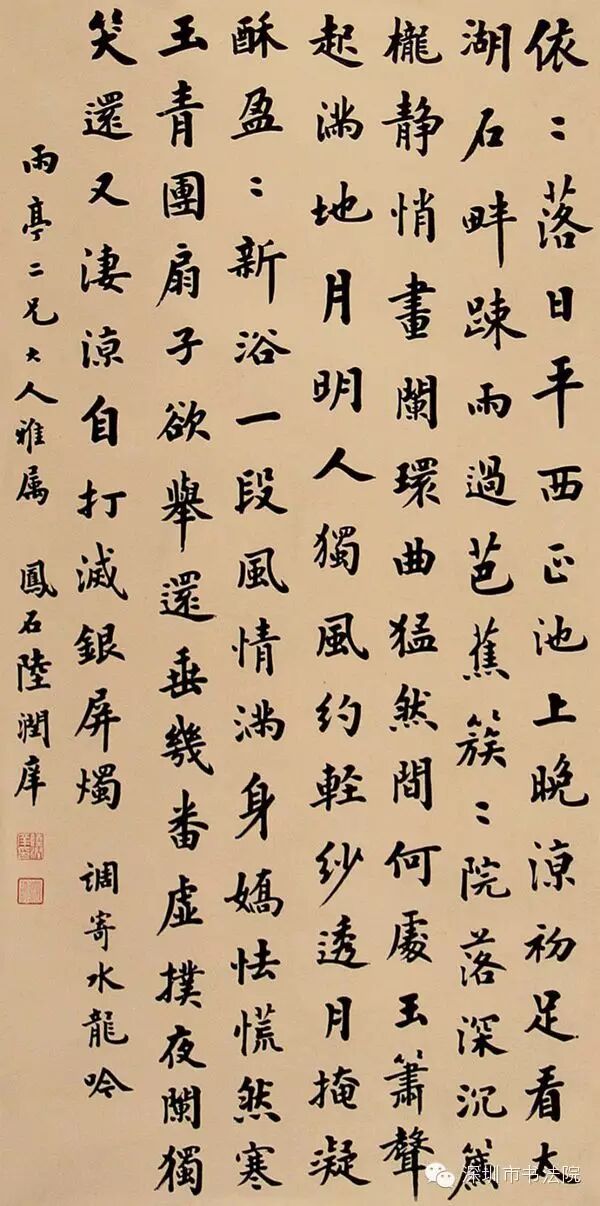 依〻落日平西正池上晚涼初足看太
湖石畔疎雨過芭蕉簇〻院落深沉簾
櫳静悄畫闌環曲猛然間何處玉簫聲
起滿地月明人獨風約軽紗透月掩凝
酥盈〻新浴一段風情滿身嬌怯慌然寒
玉青團扇子欲舉還垂幾番虛撲夜闌獨
笑還又淒涼自打滅銀屏燭 調寄水龍吟
雨亭二兄大人雅属 鳳石陸潤庠
深圳市书法院